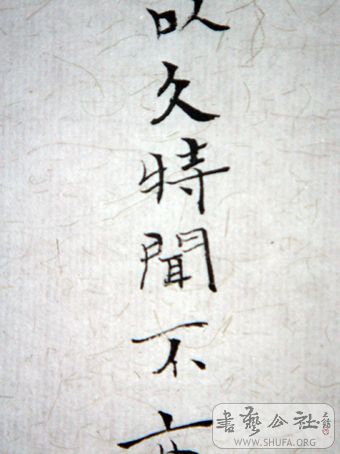 以久特聞不
書藝公社
WWW.SHUFA.ORG